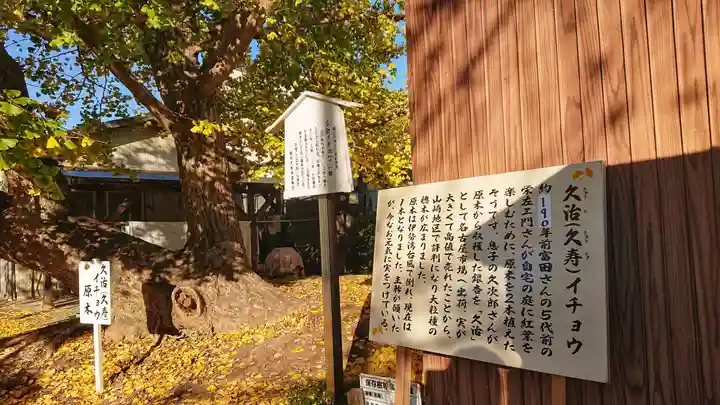 久治（久寿）イチョウ
約190年前冨田さんの5代前の
栄左ェ門さんが自宅の庭に紅葉を
楽しむために、原木を2本植えた
そうです。息子の久次郎さんが
原木から収穫した銀杏を「久治」
として名古屋市場へ出荷、実が
大きくて高値で売れたことから、
山崎地区で評判になり大粒種の
穂木が広まりました。
原木は伊勢湾台風で倒れ、現在は
1本となりました。主幹が傾いた
が、今なお元気に実をつけている。
久治（久寿）
イチョウ
原木
保存樹等